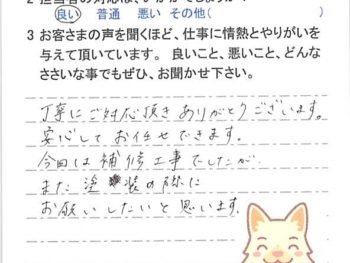 良い 普通 悪い その他(
3 お客さまの声を聞くほど、仕事に情熱とやりがいを
与えて頂いています。 良いこと、悪いこと、どんな
ささいな事でもぜひ、お聞かせ下さい。
丁寧にご対応頂きありがとうございます。
安心してお任せできます。
今回は補修工事でしたが
また塗装の際に
お願いしたいと思います。